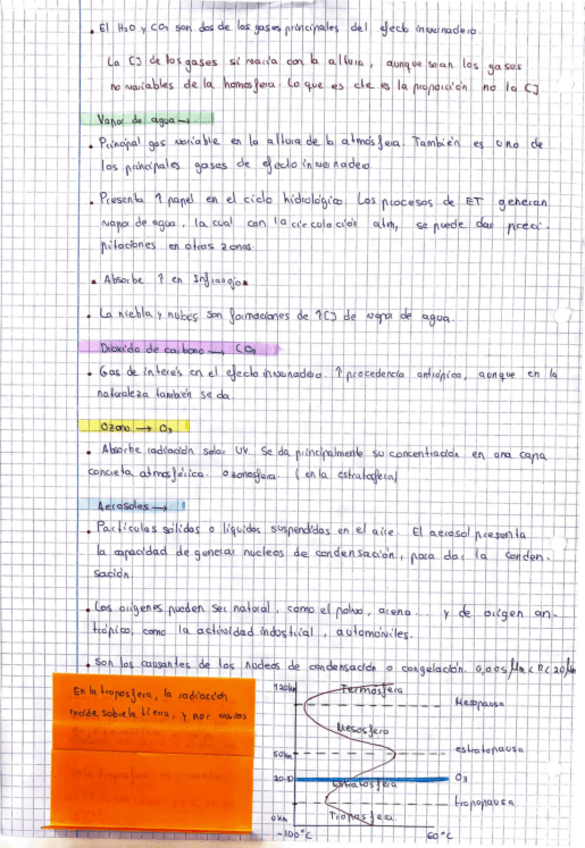 • El H2O y CO2 son dos de los gases principales del efecto invernadero.
La [] de los gases si varía con la altura, aunque sean los gases
no variables de la homosfera. Lo que es cte es la proporción no la []
Vapor de agua →
• Principal gas variable en la altura de la atmósfera. También es uno de
los principales gases de efecto invernadero
• Presenta ↑ papel en el ciclo hidrológico. Los procesos de ET generan
vapor de agua, la cual con la circulación atm, se puede dar preci-
pitaciones en otras zonas.
• Absorbe ↑ en Infrarrojos
• La niebla y nubes son formaciones de ↑[] de vapor de agua.
Dióxido de carbono → CO2
• Gas de interés en el efecto invernadero. ↑ procedencia antrópica, aunque en la
naturaleza también se da
Ozono → O3
• Absorbe radiación solar UV. Se da principalmente su concentración en una capa
concreta atmosférica. Ozonosfera. (en la estratosfera)
Aerosoles →
• Partículas sólidas o líquidas suspendidas en el aire. El aerosol presenta
la capacidad de generar nucleos de condensación, para dar la conden-
sación
• Los orígenes pueden ser natural, como el polvo, arena... y de origen an-
trópico, como la actividad industrial, automóviles.
• Son los causantes de los núcleos de condensación o congelación. 0,005 µm < R < 20 µm
En la troposfera, la radiación
incide sobre la tierra, y por varios
120km
Termosfera
Mesopausa
Mesosfera
50km
estratopausa
20-30
O3
Estratosfera
tropopausa
0km
Troposfera
-100°C
60°C